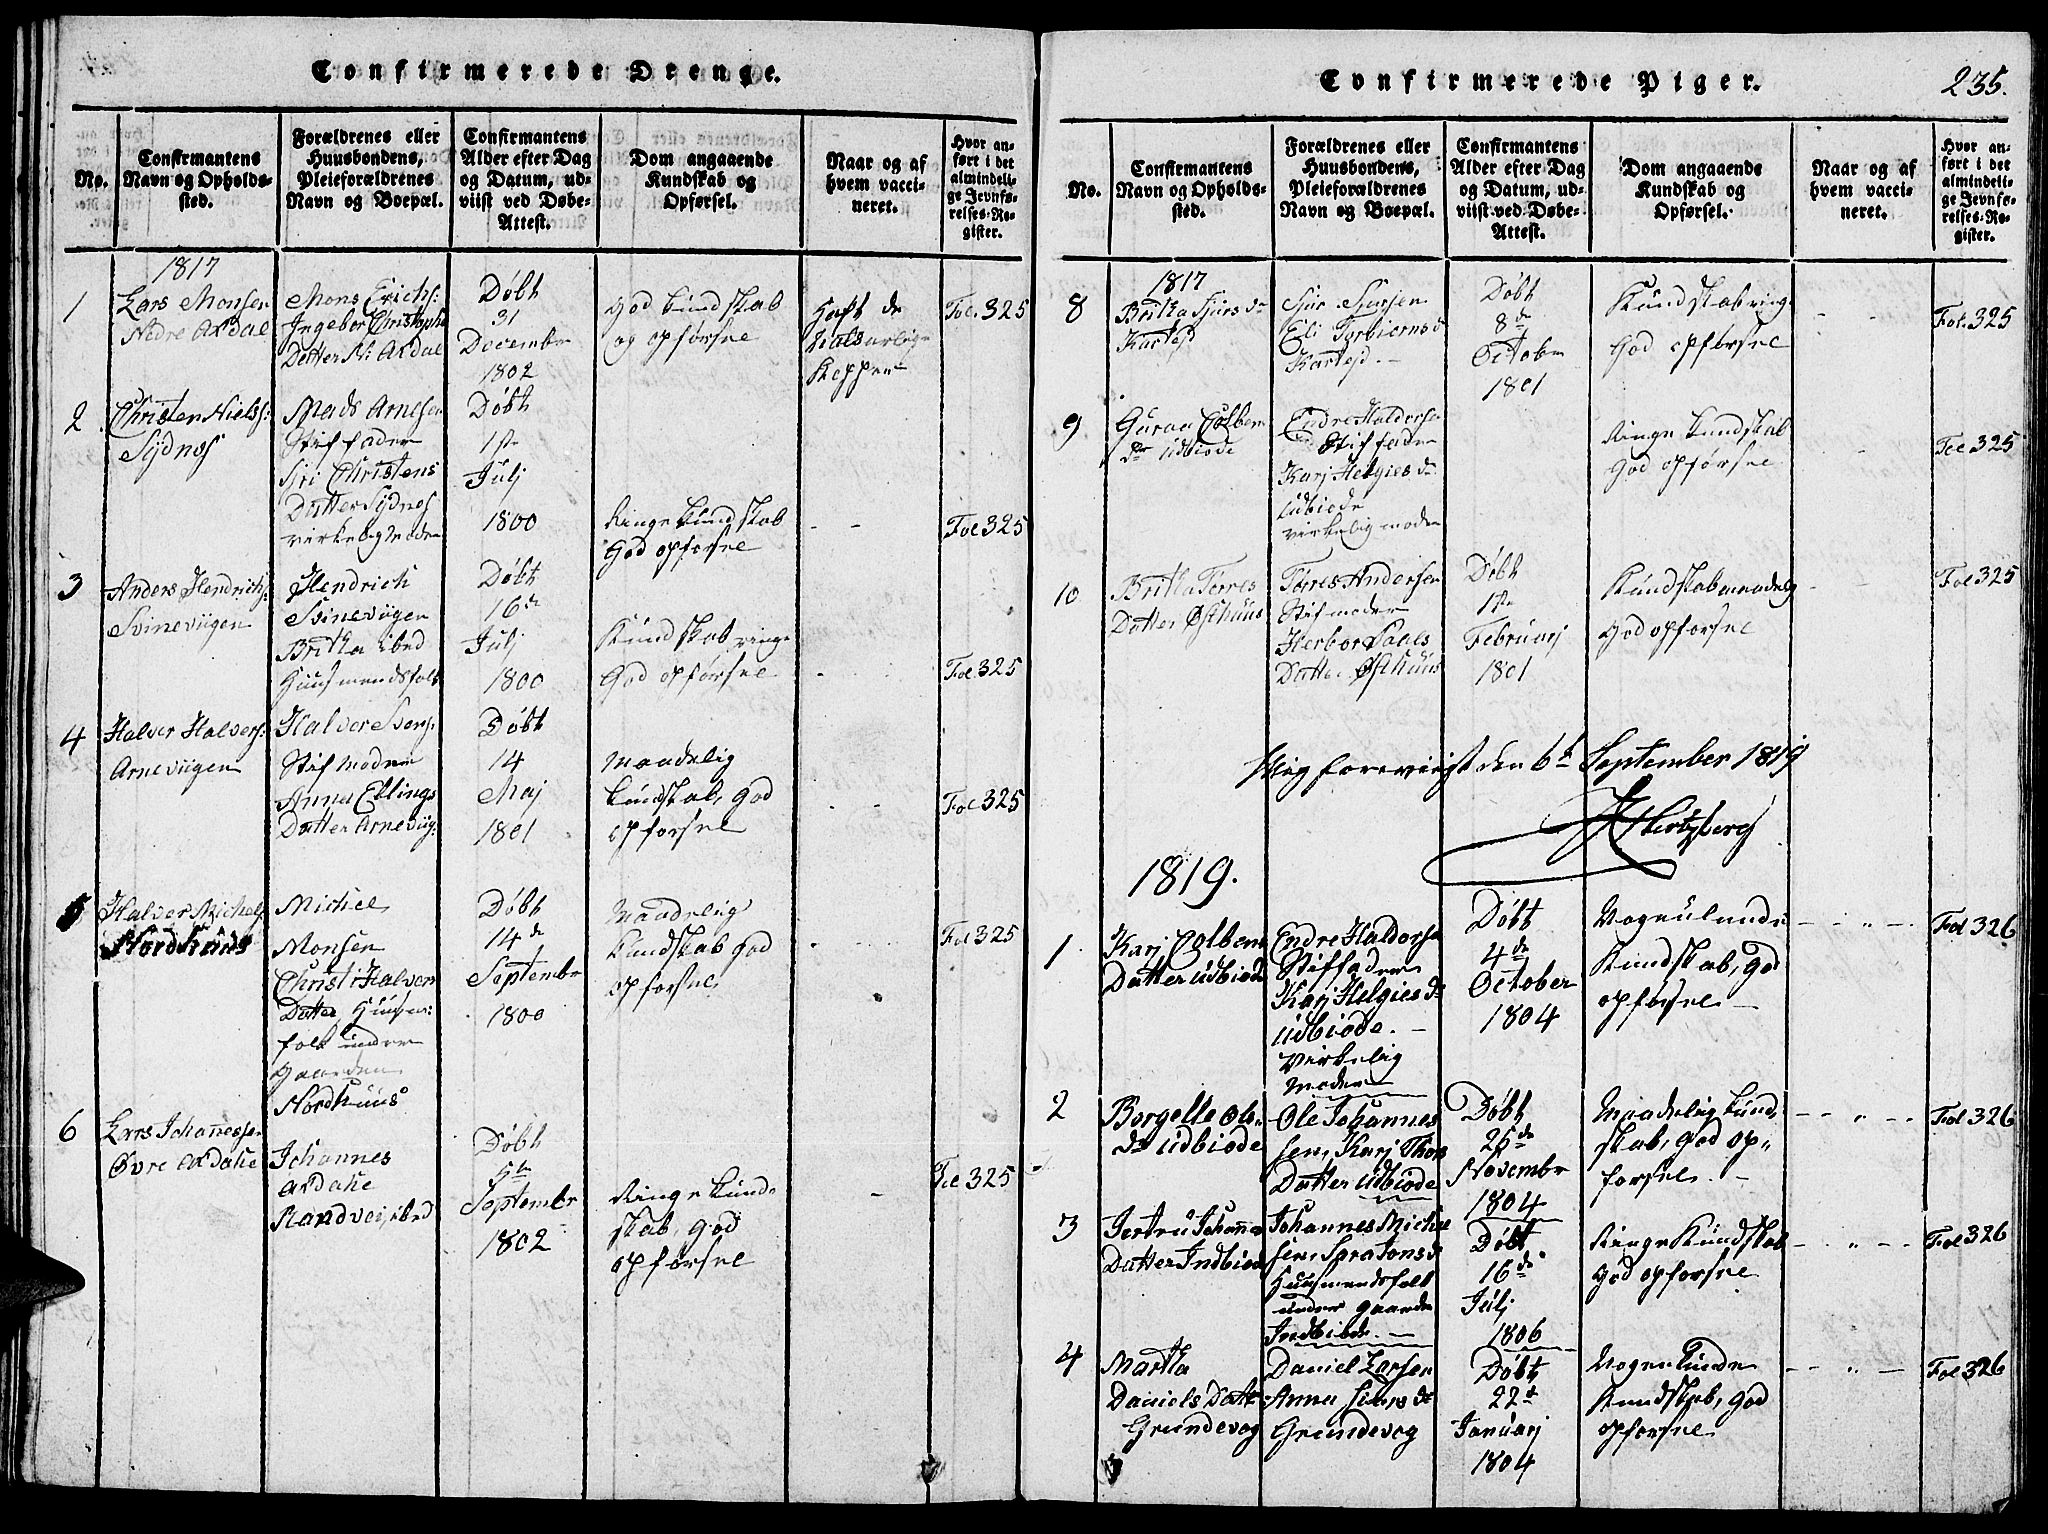 Confirmerede Drenge.
No.
Confirmantens
Navn og Opholds-
sted.
Forældrenes eller
Huusbondens,
Pleieforældrenes
Navn og Boepæl.
Confirmantens
Alder efter Dag
og Datum, ud-
viist ved Døbe-
Attest.
Dom angaaende
Kundskab og
Opførsel.
Naar og af
hvem vacci-
neret.
Hvor an-
ført i det
almindeli-
ge Jevnfø-
relses-Re-
gister.
1817
1
Lars Monsen
Nedre Axdal
Mons Erichs:
Ingebor Christophe
Datter N: Axdal
Døbt
31
December
1802
god kundskab
og opførsel
Haft de
naturlige
Kopper
Fol. 325
2
Christen Niels:
Sydnes
Mads Arnesen
Stiffader
Siri Christens
Datter Sydnes
virkelig Moder
Døbt
1ste
Julj
1800
Ringe kundskab
God opførsel
- -
Fol 325
3
Anders Hendrichs:
Svineviigen
Hendrich
Svineviigen
Britha ibed
Huusmendsfolk
Døbt
16de
Julj
1800
Kundskab ringe
God opførsel
- -
Fol. 325
4
Halver Halvers:
Arneviigen
Halver Ivers:
Stifmoder
Anna Ellings
Datter Arneviig:
Døbt
14
Maj
1801
maadelig
kundskab, God
opførsel
- -
Fol 325
5
Halver Michels
Nordhuus
Michel
Monsen
Christi Halvers
Datter, Huus-
folk under
gaarden
Nordhuus
Døbt
14de
September
1800
maadelig
kundskab God
opførsel
Fol 325
6
Lars Johannessen
Øvre Axdahl
Johannes
Axdahl
Randvei, ibed
Døbt
5te
September
1802
Ringe kund-
skab, god
opførsel
-
Fol 325
Confirmerede Piger.
235.
No.
Confirmantens
Navn og Opholds-
sted.
Forældrenes eller
Huusbondens,
Pleieforældrenes
Navn og Boepæl.
Confirmantens
Alder efter Dag
og Datum, ud-
viist ved Døbe-
Attest.
Dom angaaende
Kundskab og
Opførsel.
Naar og af
hvem vacci-
neret.
Hvor an-
ført i det
almindeli-
ge Jevnfø-
relses-Re-
gister.
1817
8
Britha Siurs dr
Siur Siursen
Eli Torbiørns d
Døbt
8de
October
1801
Kundskab ringe
God opførsel
- -
Fol. 325
9
Guroe Colben
dr Udbiode
Endre Haldorsen
Stiffader
Karj Helgies dr
Udbiode
virkelig moder
Ringe kundskab
God opførsel
- -
Fol 325
10
Britha Torres
Datter Østhuus
Torres Andersen
Stifmoder
Herbor Paals
Datter Østhuus
Døbt
1ste
Februarj
1801
Kundskab maadelig
God opførsel
- -
Fol 325
Mig foreviist den 6te September 1819
Hertzberg
1819.
1
Karj Colbens
Datter Udbiode
Endre Haldorsen
Stiffader
Karj Helgies dr
Udbiode. -
Virkelig
Moder
Døbt
4de
October
1804
Vogenlunde
Kundskab, god
opførsel -
- - " - -
Fol 326
2
Borgelle Ole-
dr Udbiode
Ole Johannes
sen, Karj Thor
Datter Udbiode
Døbt
25de
November
1804
Maadelig kund-
skab, god op-
førsel. -
- - " - -
Fol 326
3
Jertru Johannes
Datter Indbiode
Johannes Michel
sen, Sara Jons d
Huusmendsfolk
under gaarden
Indbiode. -
Døbt
16de
Julj
1806
Ringe Kundskab
God opførsel
- - " - -
Fol 326
4
Martha
Daniels Datter
Grindevog
Daniel Larsen
Anna Siurs dr
Grindevog
Døbt
22de
Januarj
1804
Vogenlunde
Kundskab, god
opførsel
- - " - -
Fol 326